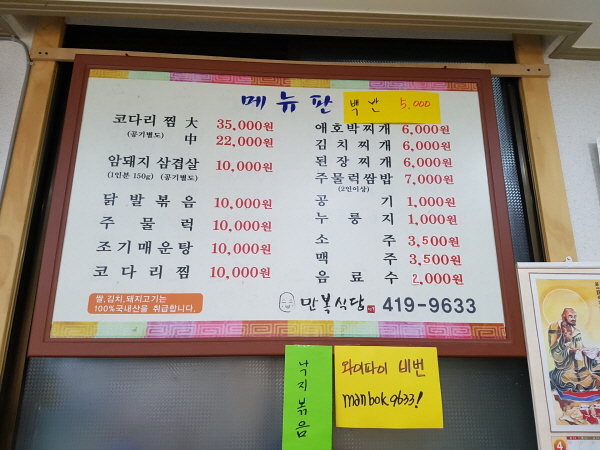 메뉴판
백반 5.000
코다리 찜 大 35,000원
(공기별도) 中 22,000원
암돼지 삼겹살 10,000원
(1인분 150g) (공기별도)
닭발볶음 10,000원
주물럭 10,000원
조기매운탕 10,000원
코다리찜 10,000원
애호박찌개 6,000원
김치찌개 6,000원
된장찌개 6,000원
주물럭쌈밥 7,000원
(2인이상)
공기 1,000원
누룽지 1,000원
소주 3,500원
맥주 3,500원
음료수 2,000원
쌀,김치,돼지고기는
100%국내산을 취급합니다.
만복식당 419-9633
낙지볶음
와이파이 비번
manbok9633!
4